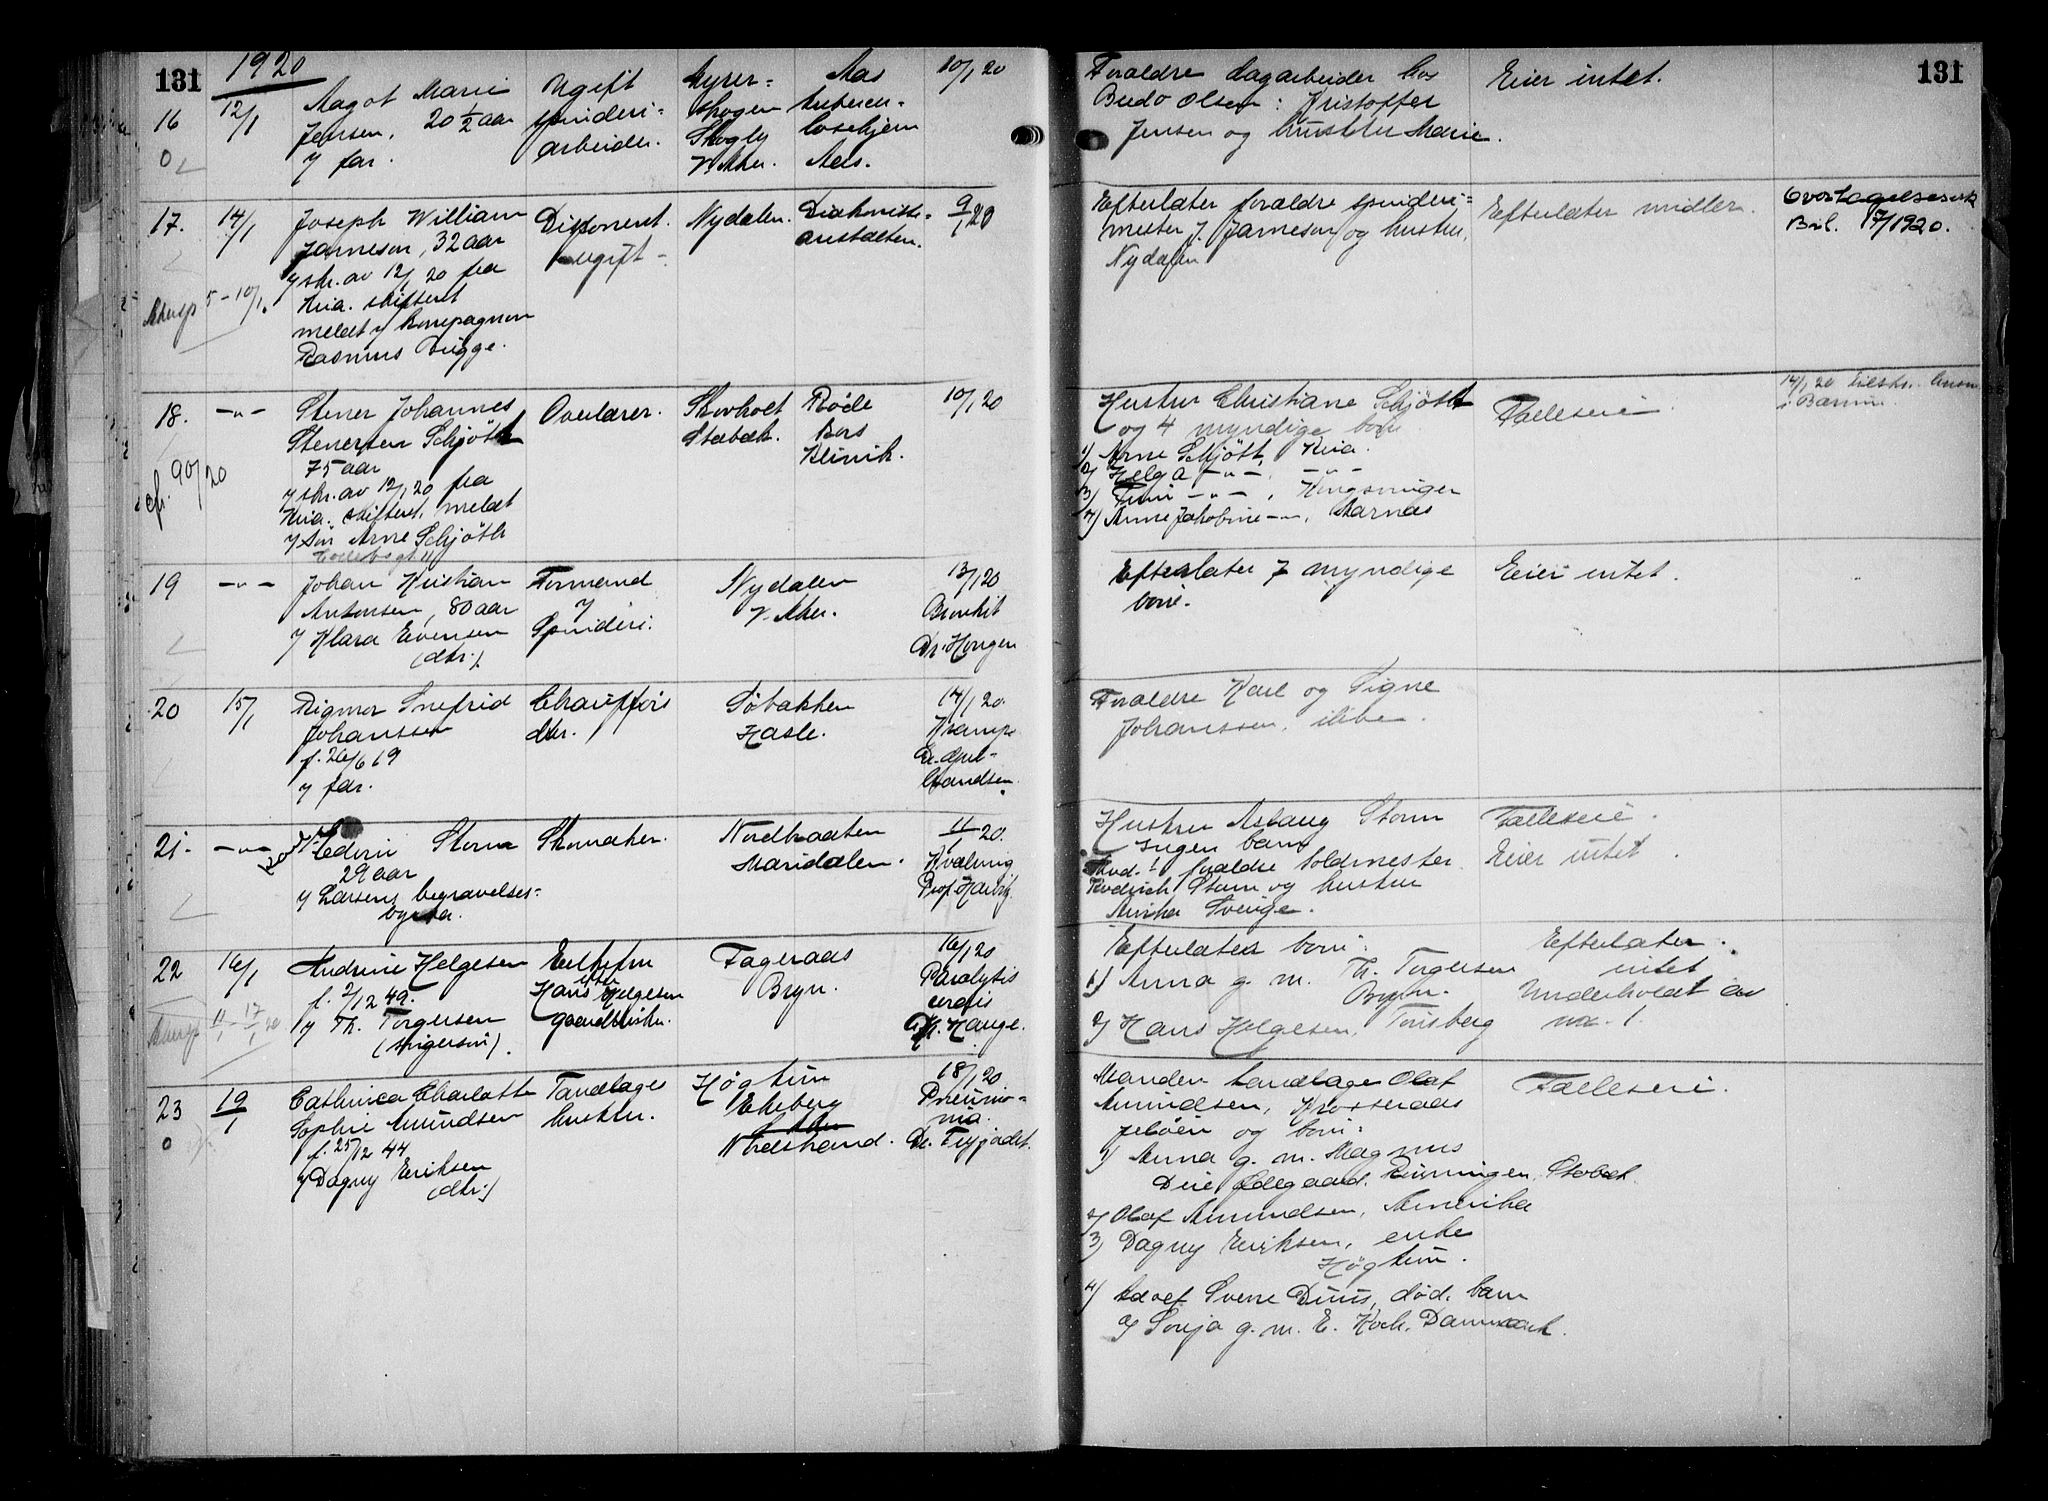 131
1920
131
16
12/1
Aagot Marie
Jensen, 20 1/2 aar
v/ far.
Ugift
spinderi-
arbeider.
Myrer-
skogen
Skogly
V. Aker.
Aas
tubercu-
losehjem
Aas.
10/1 20
Foraldre dagarbeider hos
Olsen: Kristoffer
Jensen og hustru Marie.
Eier intet.
17.
14/1
Joseph William
Jameson, 32 aar
v/ skr. av 12/1 20 fra
Kria. skifteret
meldt v/ kompagnon
Rasmus Brigge.
Akersp 5 - 10/1.
Disponent.
- ugift -
Nydalen.
Diakonisse-
anstalten.
9/1 20
Efterlater foraldre spinderi-
mester J. Jameson og hustru,
Nydalen
Efterlater midler.
Overtagelseserk
Bril. 17/1 1920.
18.
-"-
Stener Johannes
Stenersen Schjött
75 aar
v/ skr. av 12/1 20 fra
Kria. skifteret, meldt
v/ sön Arne Schjött
cfr. 90/20
Overlærer.
Skovholt
Stabæk.
Röde
Kors
Klinik.
10/1 20
Hustru Christiane Schjött
og 4 myndige born
1) Arne Schjött, Kria.
2) Helga -"-, -"-
3) -"-, Kongsvinger
4) Anne Jakobine -"-, Aarnes
Fælleseie.
14/1 20 tilskr.
i Bærum
19
-"-
Johan Kristian
Antonsen, 80 aar
v/ Klara Evensen
(dtr.)
Formand
v/
Spinderi.
Nydalen
V. Aker.
13/1 20
Bronkit
Dr. Hougen
Efterlater 7 myndige
born.
Eier intet.
20
15/1
Rigmor Snefrid
Johanssen
f. 26/6 19
v/ far.
Chaufförs
dtr.
Söbakken
Hasle.
14/1 20.
Krampe
Foraldre Karl og Signe
Johanssen, ikke.
21.
-"-
Edvin Storm
29 aar
v/ Larsens begravelses-
byraa.
Skomaker.
Nordbraaten
Maridalen.
11/1 20.
Kvælning
Prof. Harbitz.
Hustru Aslaug Storm
Ingen barn
foraldre toldmester
Fredrich Storm og hustru
Sverige.
Fælleseie.
Eier intet
22
16/1
Andrine Helgesen
f. 2/12 49.
v/ Th. Torgersen
(svigersön).
Akersp 11/1 - 17/1 20
Enkefru
efter
Hans Helgesen
gaardbruker.
Fageraas
Bryn.
16/1 20
Paralytis
cordis
Hauge.
Efterlater born:
1) Anna g. m. Th. Torgersen
Bryn.
2) Hans Helgesen, Tönsberg
Efterlater
intet
Underholdt av
no. 1.
23
0
19/1
Cathinca Charlotte
Sophie Amundsen
f. 25/12 44
v/ Dagny Eriksen
(dtr.)
Tandlæges
hustru.
Högtun
Ekeberg
Nordstrand.
18/1 20
Pneumo-
nia.
Manden tandlæge Olaf
Amundsen,
Jelöen og born:
1) Anna g. m. Magnus
Due Ødegaard. Stabæk
2) Olaf Amundsen, Amerika
3) Dagny Eriksen, enke
Högtun.
4) Sverre Duus, död. barn
a/ Sonja g. m. E. Koch. Danmark.
Fælleseie.